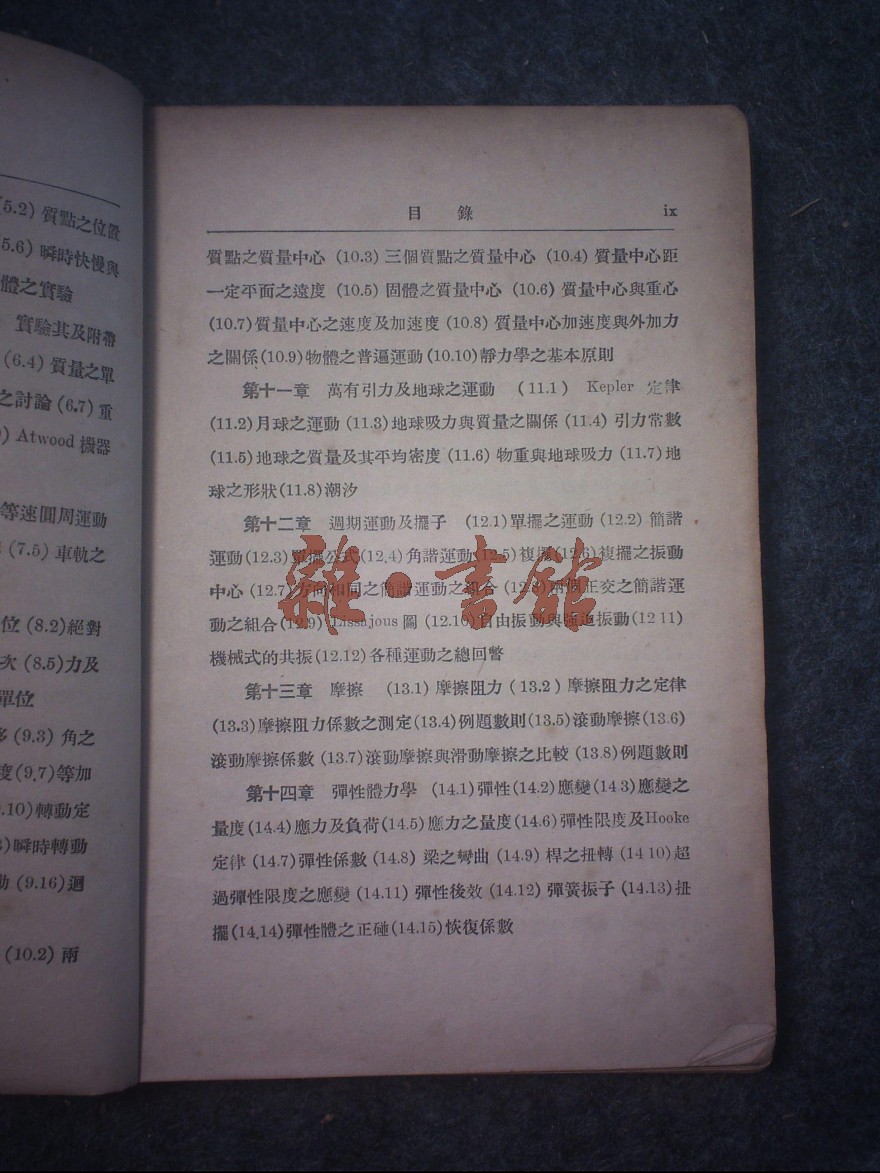 (5.2) 質點之位置
5.6) 瞬時快慢與
體之實驗
實驗其及附帶
(6.4) 質量之單
之討論 (6.7) 重
) Atwood 機器
等速圓周運動
(7.5) 車軌之
位 (8.2)絕對
次 (8.5)力及
單位
(9.3) 角之
度(9.7)等加
.10)轉動定
)瞬時轉動
動 (9.16)迴
(10.2) 兩
目 錄 ix
質點之質量中心 (10.3) 三個質點之質量中心 (10.4) 質量中心距
一定平面之遠度 (10.5) 固體之質量中心 (10.6) 質量中心與重心
(10.7)質量中心之速度及加速度 (10.8) 質量中心加速度與外加力
之關係(10.9)物體之普遍運動(10.10)靜力學之基本原則
第十一章 萬有引力及地球之運動 (11.1) Kepler 定律
(11.2)月球之運動 (11.3)地球吸力與質量之關係 (11.4) 引力常數
(11.5)地球之質量及其平均密度 (11.6) 物重與地球吸力 (11.7)地
球之形狀(11.8)潮汐
第十二章 週期運動及擺子 (12.1)單擺之運動 (12.2) 簡諧
運動(12.3)單擺公式(12.4)角諧運動(12.5)複擺(12.6)複擺之振動
中心 (12.7)方向相同之簡諧運動之組合 (12.8)兩個正交之簡諧運
動之組合(12.9) Lissajous圖 (12.10)自由振動與强迫振動(12 11)
機械式的共振(12.12)各種運動之總回瞥
雜·書館
第十三章 摩擦 (13.1)摩擦阻力(13.2) 摩擦阻力之定律
(13.3)摩擦阻力係數之測定(13.4)例題數則(13.5)滾動摩擦(13.6)
滾動摩擦係數 (13.7)滾動摩擦與滑動摩擦之比較 (13.8)例題數則
第十四章 彈性體力學 (14.1)彈性(14.2)應變(14 3)應變之
量度(14.4)應力及負荷(14.5)應力之量度(14.6)彈性限度及Hooke
定律 (14.7)彈性係數 (14.8) 梁之彎曲 (14.9) 桿之扭轉 (14 10)超
過彈性限度之應變 (14.11) 彈性後效 (14.12) 彈簧振子 (14.13)扭
擺(14.14)彈性體之正碰(14.15)恢復係數